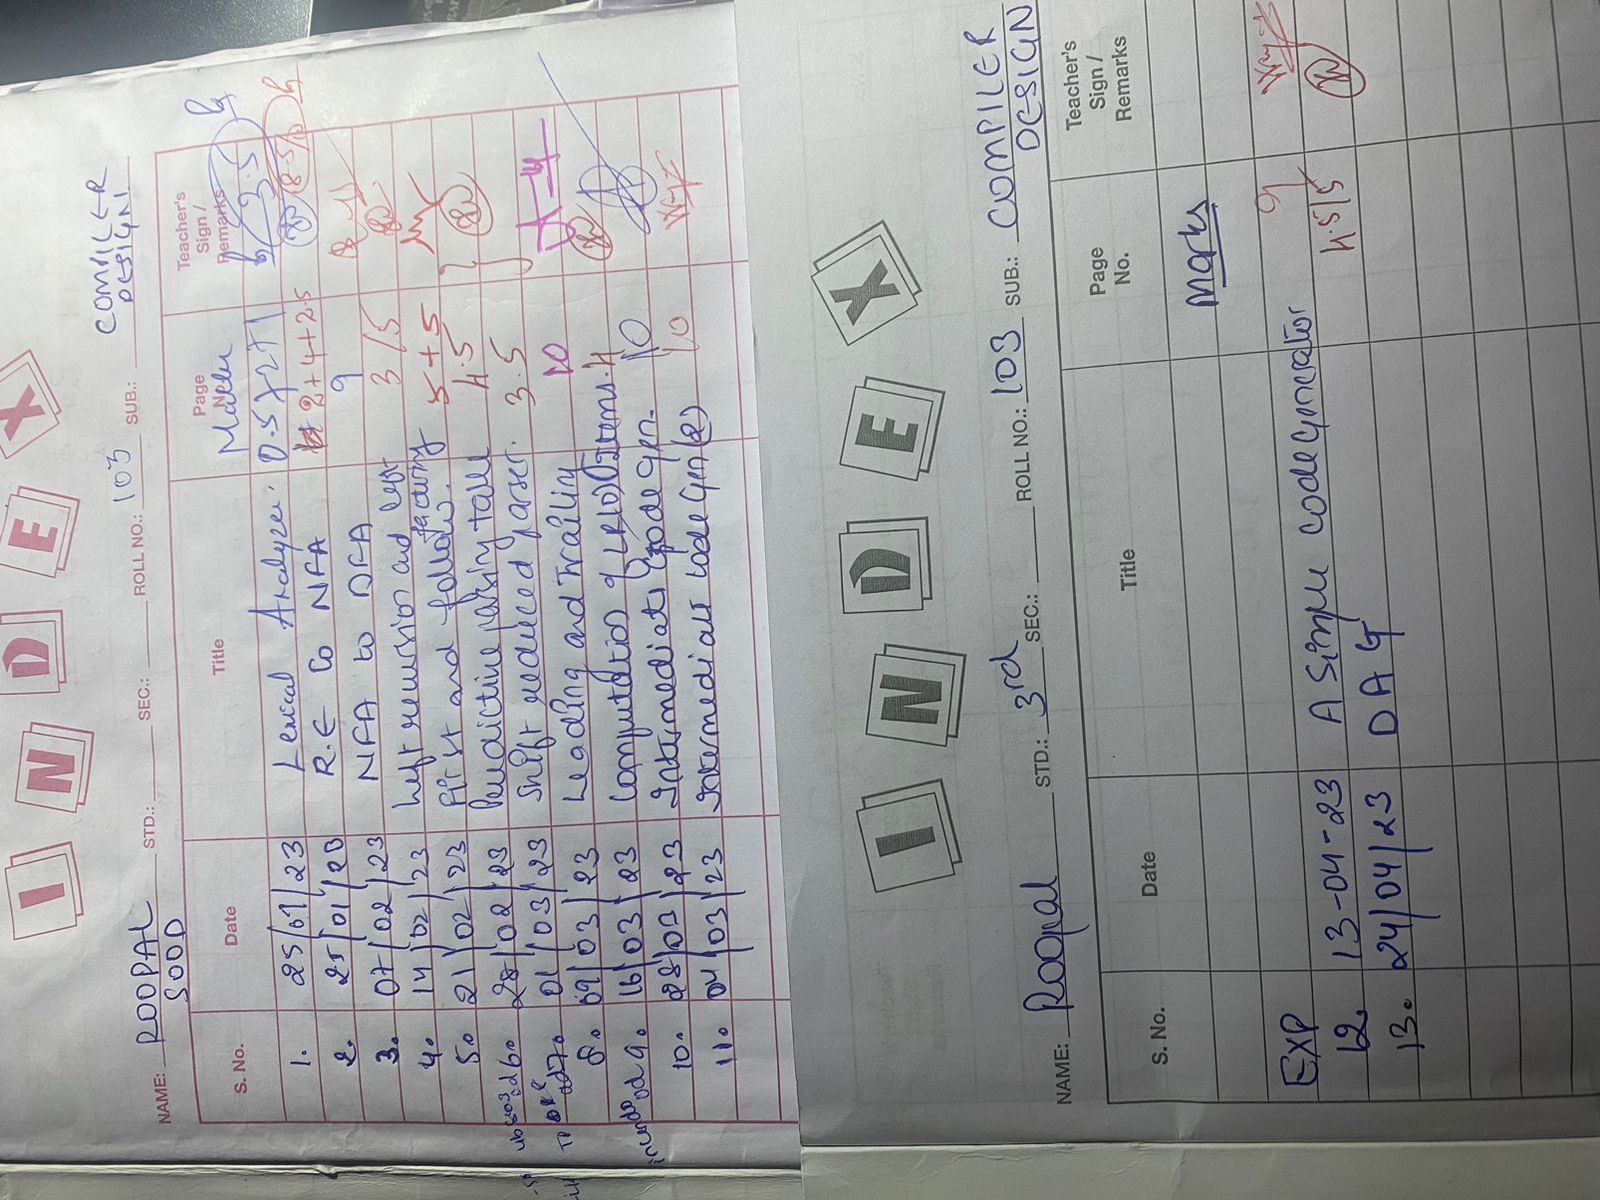 INDEX
NAME: ROOPAL SOOD STD.: SEC.: ROLL NO.: 103 SUB.: COMPILER DESIGN
S. No. Date Title Page No. Teacher's Sign / Remarks
Marks
1. 25/01/23 Lexical Analyzer. 0.5+2+1 3.5
2. 25/01/23 R.E to NFA 2+4+2.5 8.5
3. 07/02/23 NFA to DFA 9
4. 14/02/23 Left recursion and left factoring 3/5
5. 21/02/23 First and follow. 5+5
6. 28/02/23 Predictive parsing table 4.5
7. 01/03/23 Shift reduced parser. 3.5
8. 09/03/23 Leading and Trailing 10
9. 16/03/23 Computation of LR(0) Items. 4
10. 28/03/23 Intermediate Code gen. 10
11. 04/03/23 Intermediate Code Gen (2) 10
INDEX
NAME: Roopal STD.: 3rd SEC.: ROLL NO.: 103 SUB.: COMPILER DESIGN
S. No. Date Title Page No. Teacher's Sign / Remarks
Marks
EXP
12. 13-04-23 A Simple code generator 9
13. 24/04/23 DAG 4.5/5